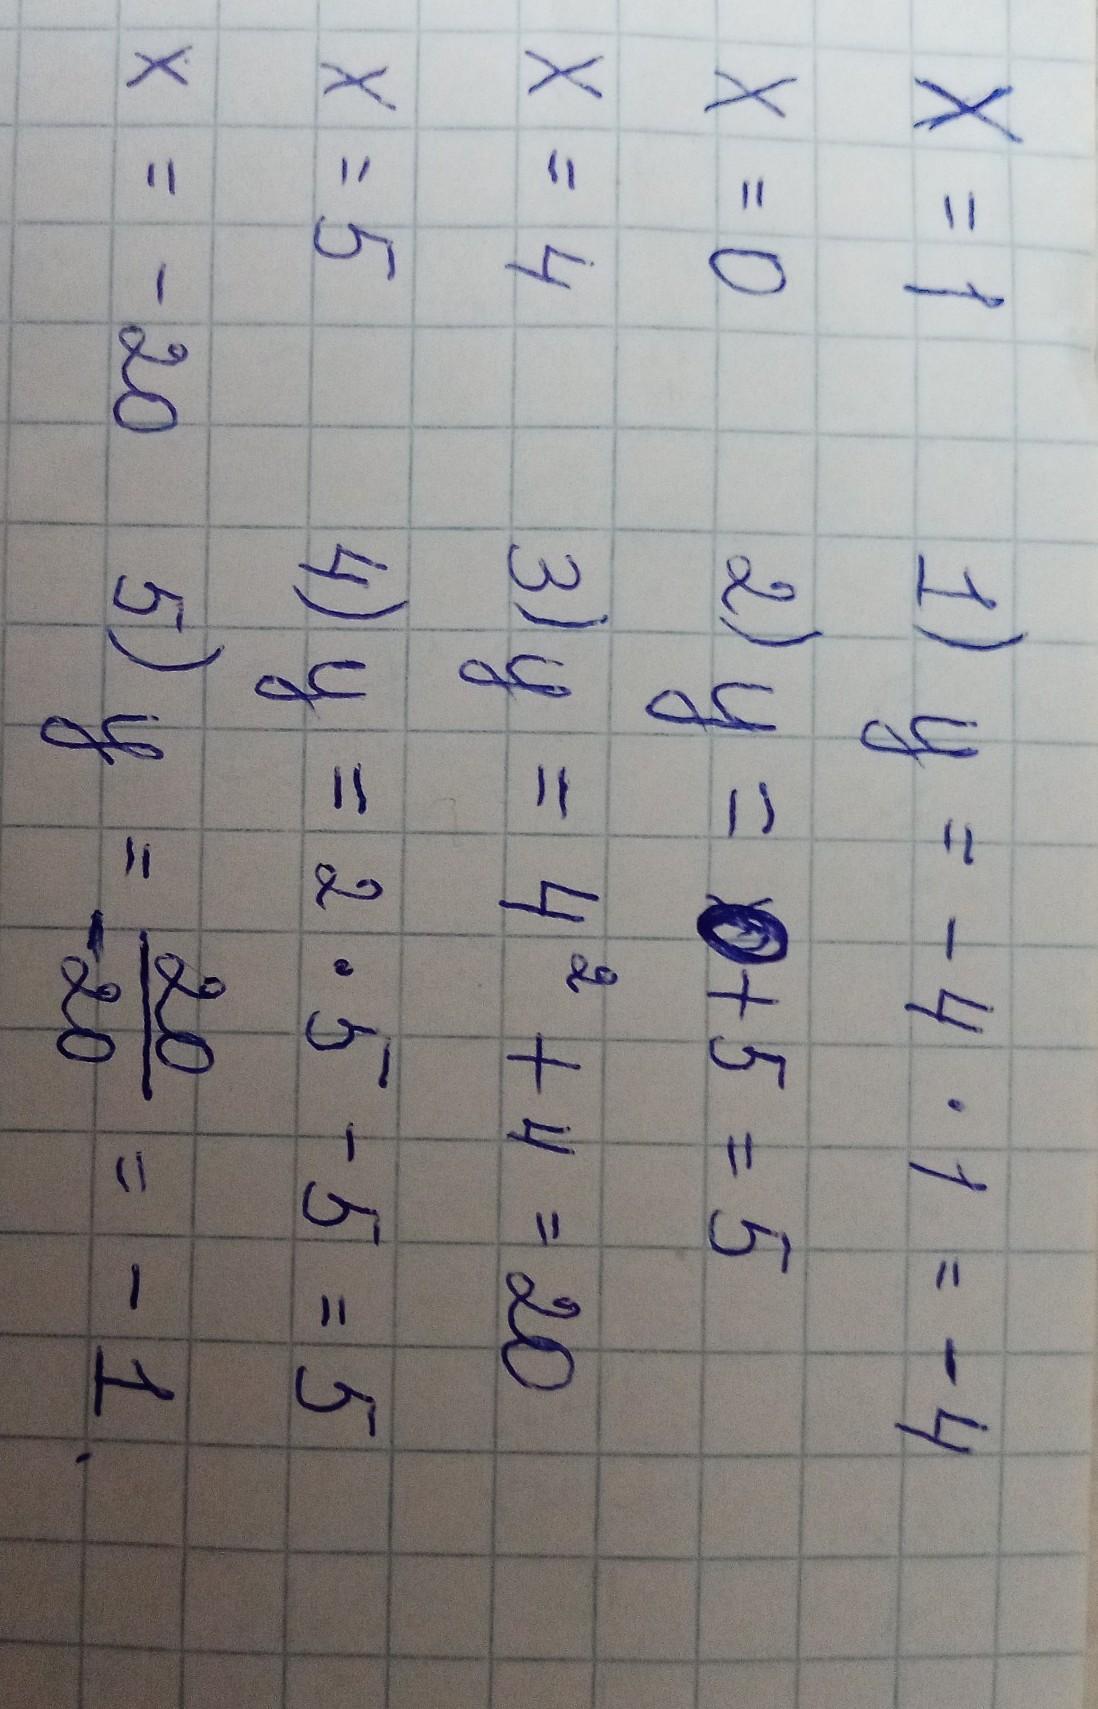 x = 1 1) y = - 4 · 1 = - 4
x = 0 2) y = 0 + 5 = 5
x = 4 3) y = 4² + 4 = 20
x = 5 4) y = 2 · 5 - 5 = 5
x = - 20 5) y = 20/-20 = - 1.